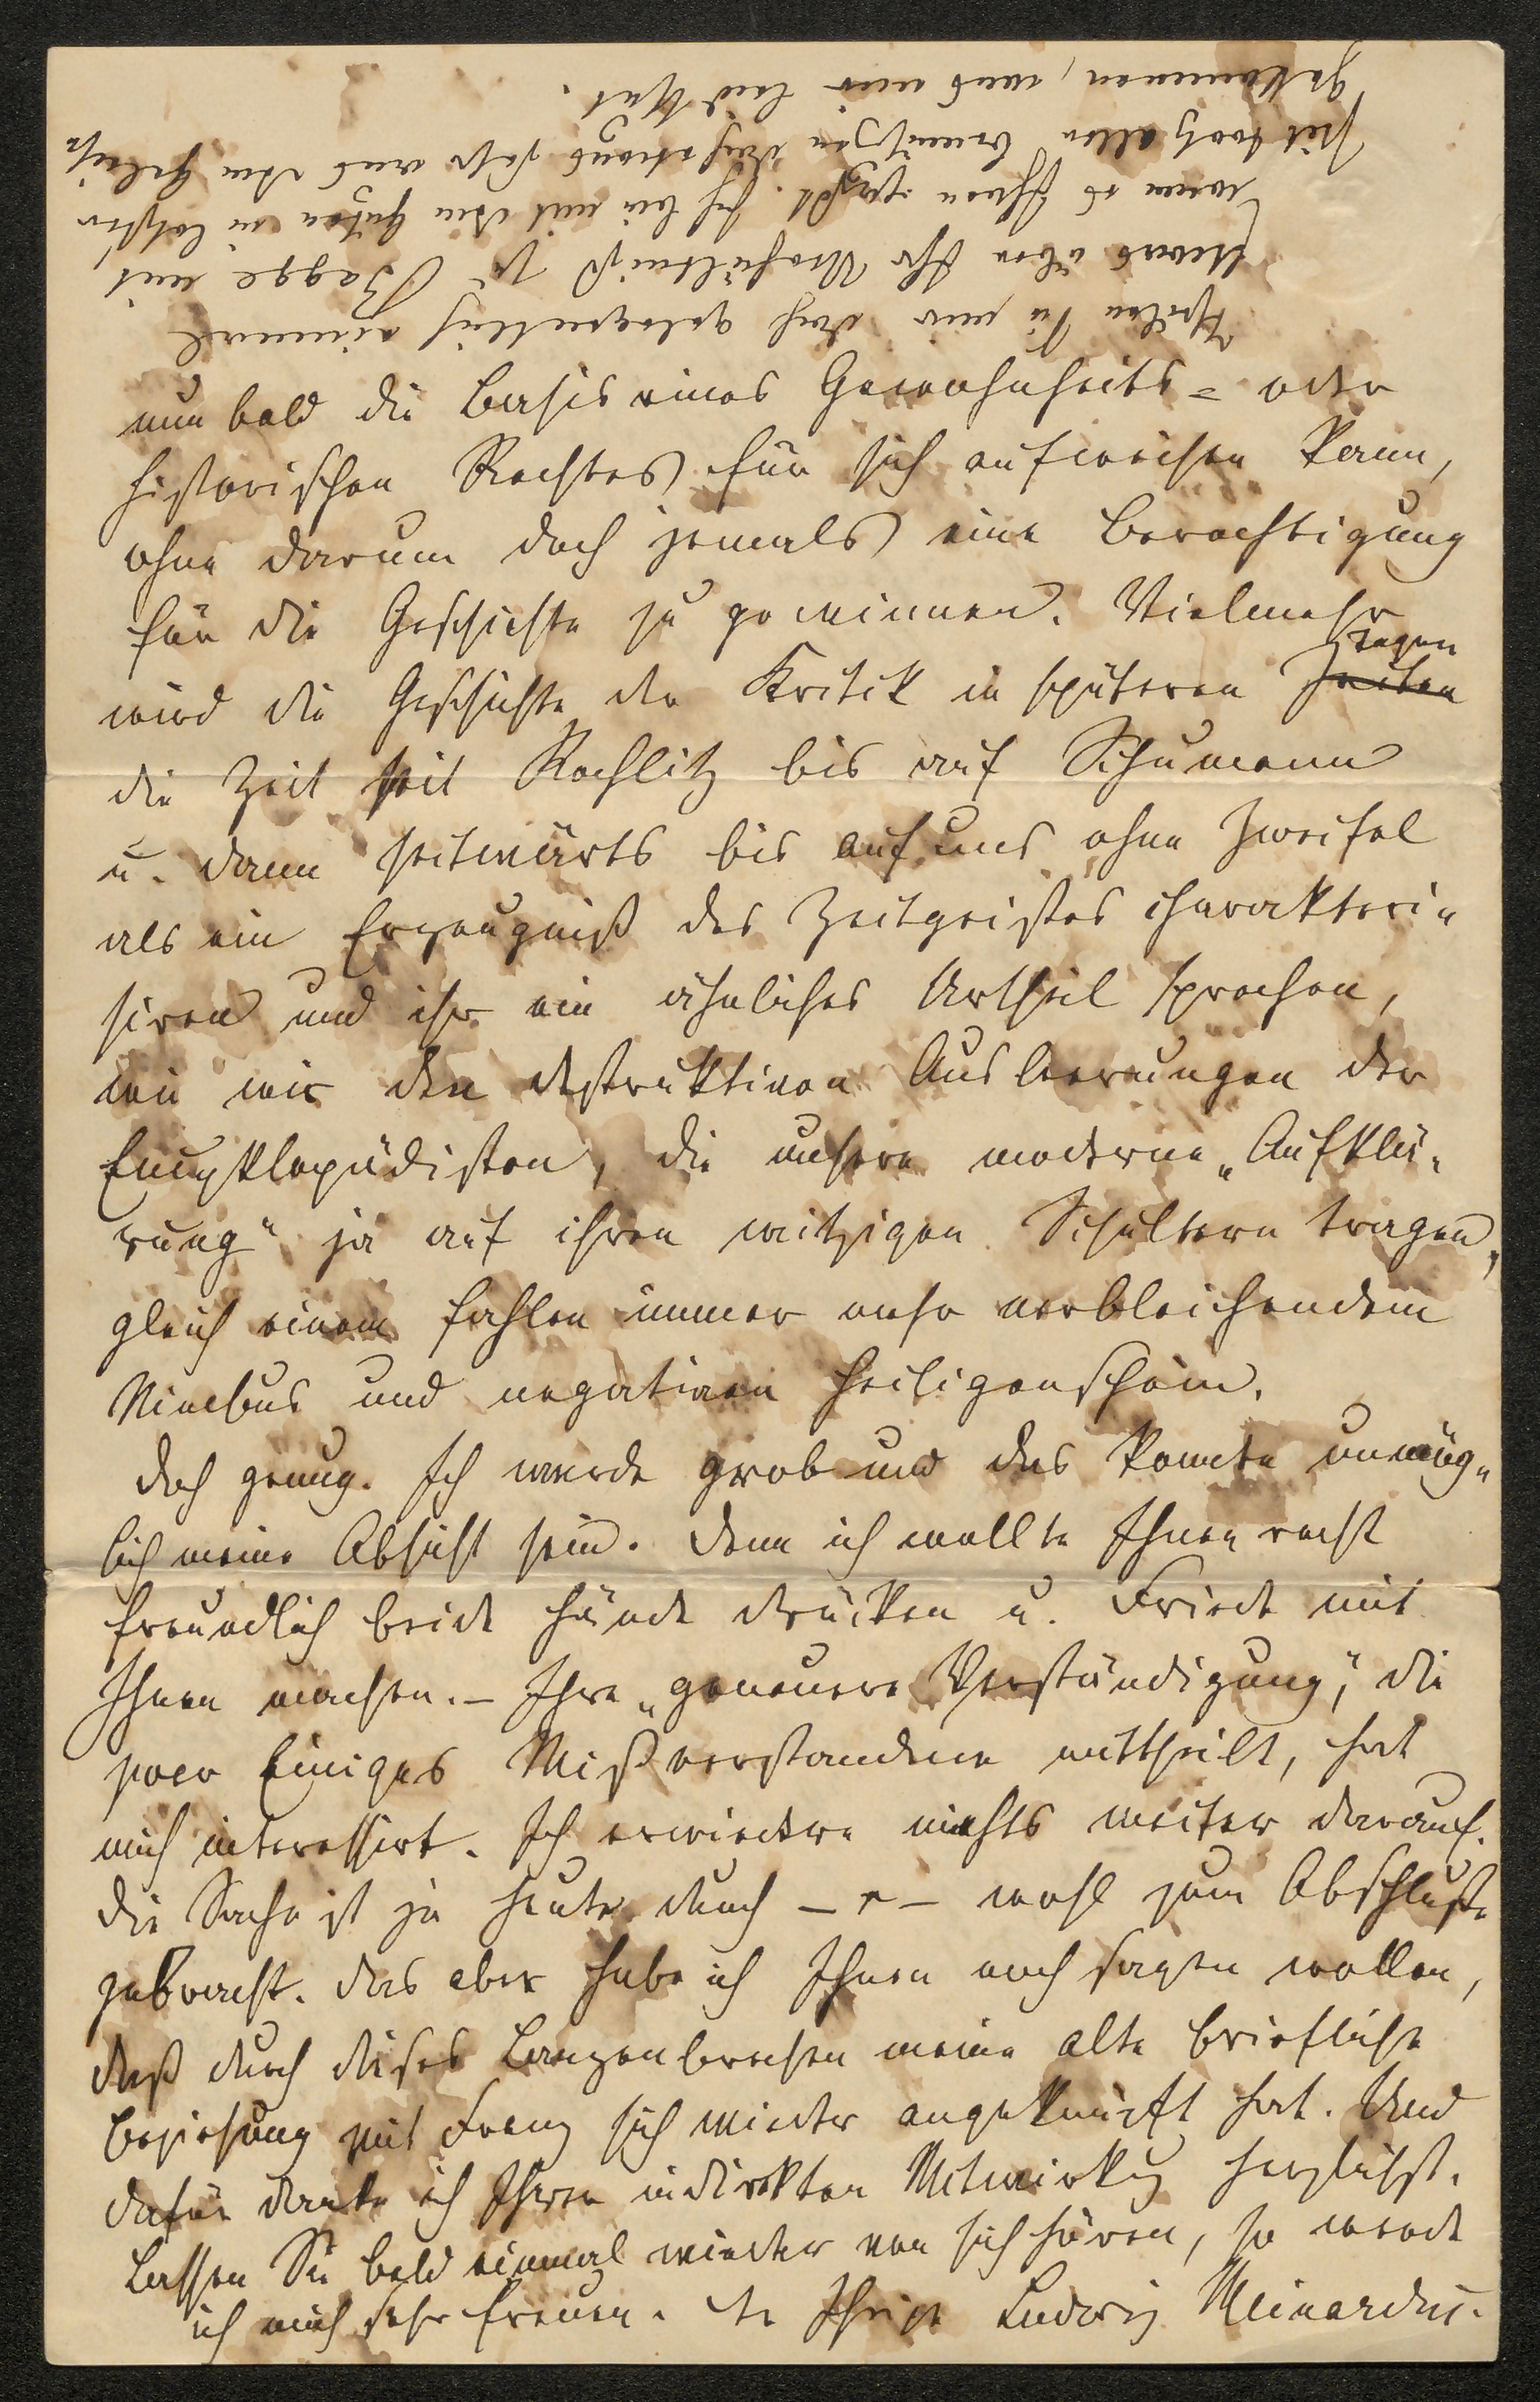 nun bald die Basis eines Gewohnheits- oder
historischen Rechtes für sich aufweisen kann,
ohne darum doch jemals eine Berechtigung
für die Geschichte zu gewinnen. Vielmehr
wird die Geschichte der Kritik in späteren Tagen
die Zeit seit Rochlitz bis auf Schumann
u. dann seitwärts bis auf uns ohne Zweifel
als ein Erzeugniß des Zeitgeistes charakteri-
siren und ihr ein ähnliches Urtheil sprechen,
wie wir den destruktiven Ausleerungen der
Encyklopädisten, die unsere moderne „Aufklä-
rung“ ja auf ihren witzigen Schultern tragen,
gleich einem fahlen immer mehr verbleichendem
Nimbus und negativen Heiligenschein.
Doch genug. Ich werde grob und das konnte unmög-
lich meine Absicht sein. Denn ich wollte Ihnen recht
freundlich beide Hände drücken u. Friede mit
Ihnen machen. – Ihre „genauere Verständigung“, die
zwar Einiges Mißverstandene mittheilt, hat
mich interessirt. Ich erwiedere nichts weiter darauf.
Die Sache ist ja heute durch – r – wohl zum Abschluße
gebracht. Das aber habe ich Ihnen noch sagen wollen,
daß durch dieses Lanzenbrechen meine alte briefliche
Beziehung mit Franz sich wieder angeknüpft hat. Und
dafür danke ich Ihrer indirekten Mitwirkg herzlichst.
Lassen Sie bald einmal wieder von sich hören, so werde
ich mich sehr freuen. Der Ihrige Ludwig Meinardus.
Theilen Sie mir doch gelegentlich einmal
Etwas über Ihr Verhältniß zu Bagge mit
wenn es Ihnen paßt. Ich bin mit dem Guten in letzter
Zeit trotz allen Dußthums sehr aus dem Geleise
gekommen, was mir leid thut.